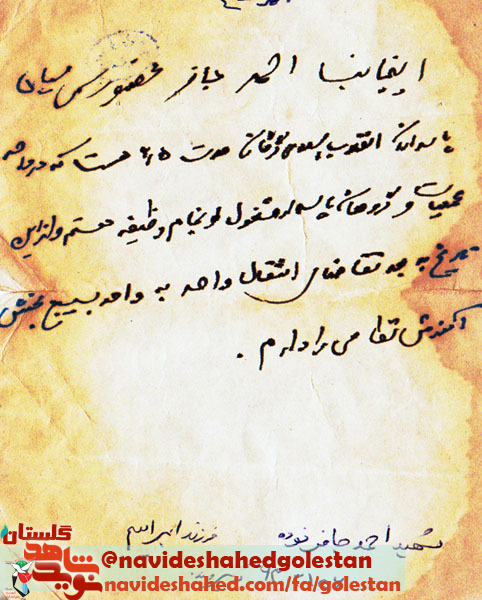 اینجانب احمد حضور رسمی سپاه
پاسداران انقلاب اسلامی مدت است که در واحد
عملیات و گروهان پاسدار مشغول انجام وظیفه هستم و از این
تاریخ به بعد تقاضای انتقال واحد به واحد بسیج بخش
آموزش نظامی را دارم .
شهید احمد نوده فرزند ابراهیم
گلستان
نوید شاهد
@navideshahedgolestan
navideshahed.com/fa/golestan